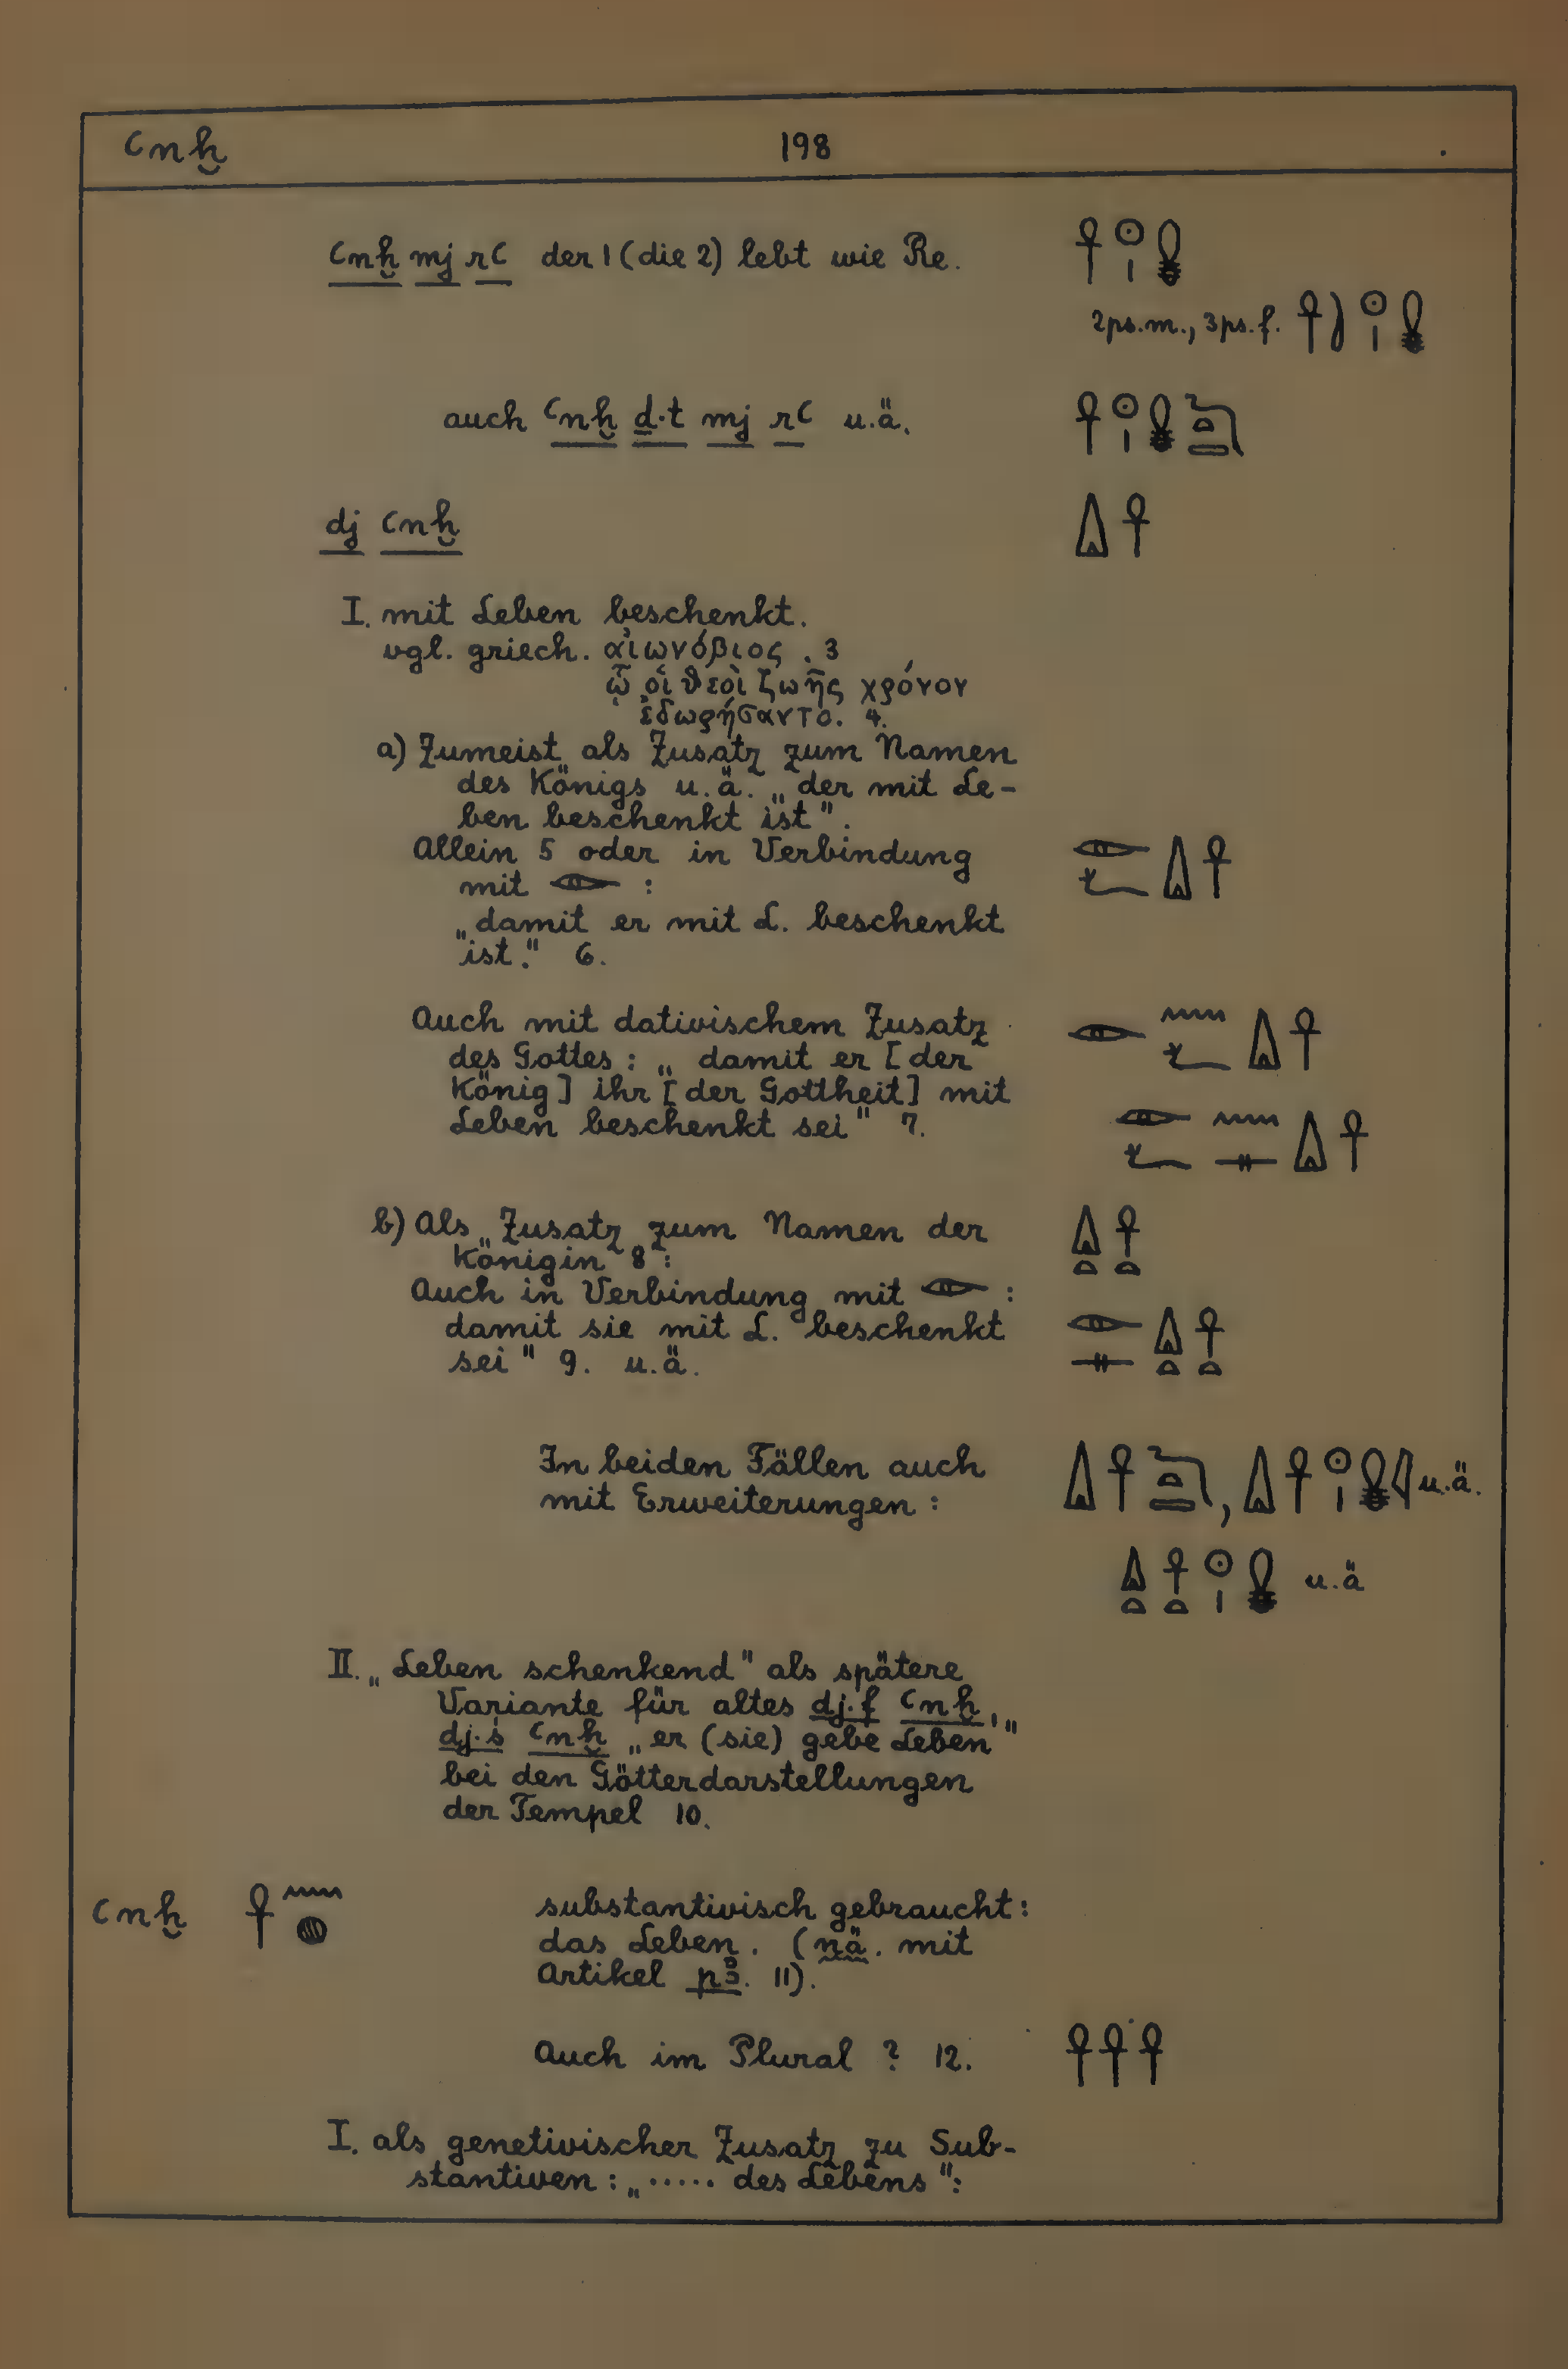 ꜥnḫ 198
ꜥnḫ mj rꜥ der 1 (die 2) lebt wie Re. 𓋹𓇳𓏤𓎛
2ps.m., 3ps.f.
auch ꜥnḫ ḏ.t mj rꜥ u.ä.
dj ꜥnḫ
I. mit Leben beschenkt.
vgl. griech. αἰωνόβιος . 3
ᾧ οἱ θεοὶ ζωῆς χρόνον
ἐδωρήσαντο. 4.
a) Zumeist als Zusatz zum Namen
des Königs u.ä. „der mit Le-
ben beschenkt ist".
Allein 5 oder in Verbindung
mit 𓂋 :
„damit er mit L. beschenkt
ist." 6.
Auch mit dativischem Zusatz
des Gottes: „ damit er [der
König] ihr [der Gottheit] mit
Leben beschenkt sei" 7.
b) Als Zusatz zum Namen der
Königin 8:
Auch in Verbindung mit 𓁹 :
„damit sie mit L. beschenkt
sei" 9. u.ä.
In beiden Fällen auch
mit Erweiterungen: u.ä.
u.ä
II. „Leben schenkend" als spätere
Variante für altes dj.f ꜥnḫ,
dj.ś ꜥnḫ „er (sie) gebe Leben"
bei den Götterdarstellungen
der Tempel 10.
ꜥnḫ 𓋹𓈖𓐍 substantivisch gebraucht:
das Leben. (nä. mit
Artikel pꜣ. 11).
Auch im Plural ? 12. 𓋹𓋹𓋹
I. als genetivischer Zusatz zu Sub-
stantiven: „..... des Lebens":